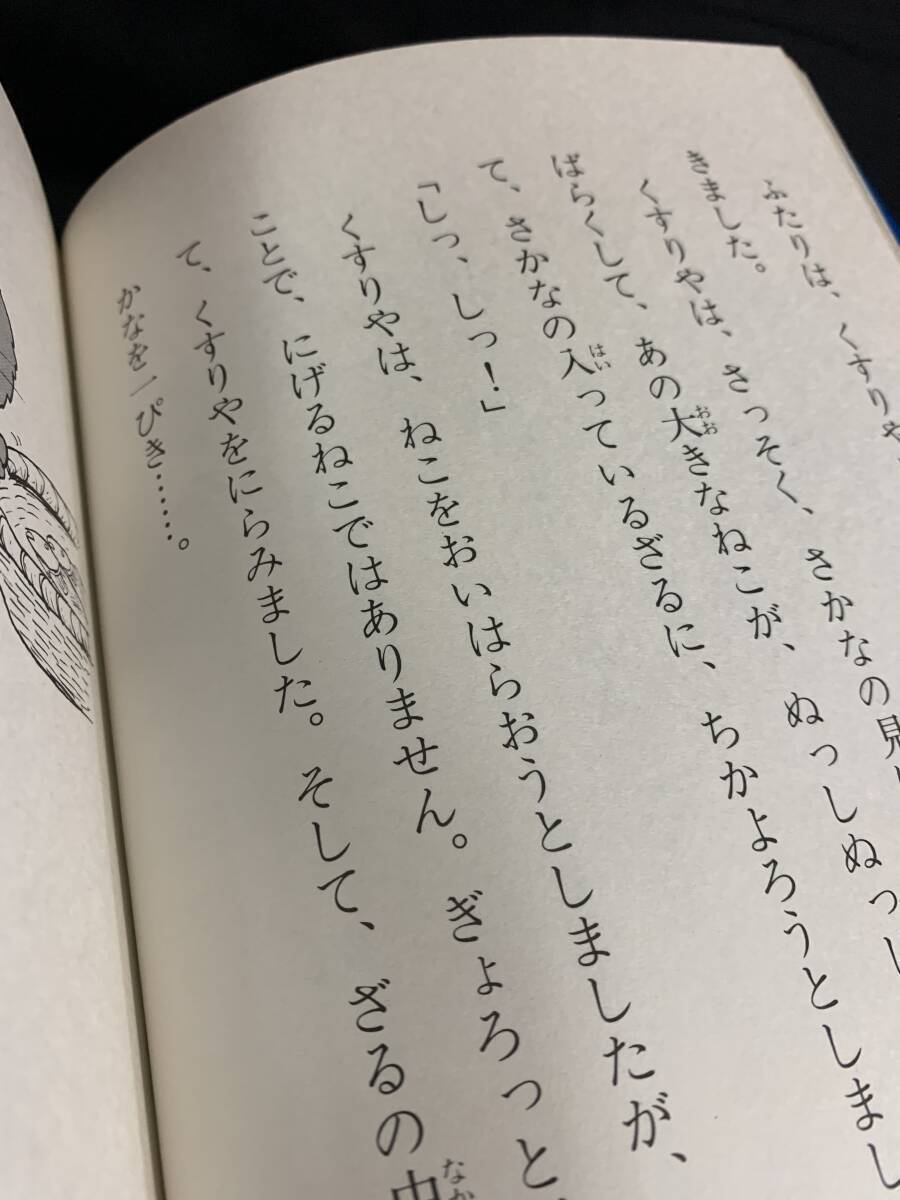 ふたりは、くすりや
きました。
くすりやは、さっそく、さかなの見
ばらくして、あの大きなねこが、ぬっしぬっし
て、さかなの入っているざるに、ちかよろうとしまし
「しっ、しっ！」
くすりやは、ねこをおいはらおうとしましたが、
ことで、にげるねこではありません。ぎょろっと、
て、くすりやをにらみました。そして、ざるの中
かなを一ぴき……。